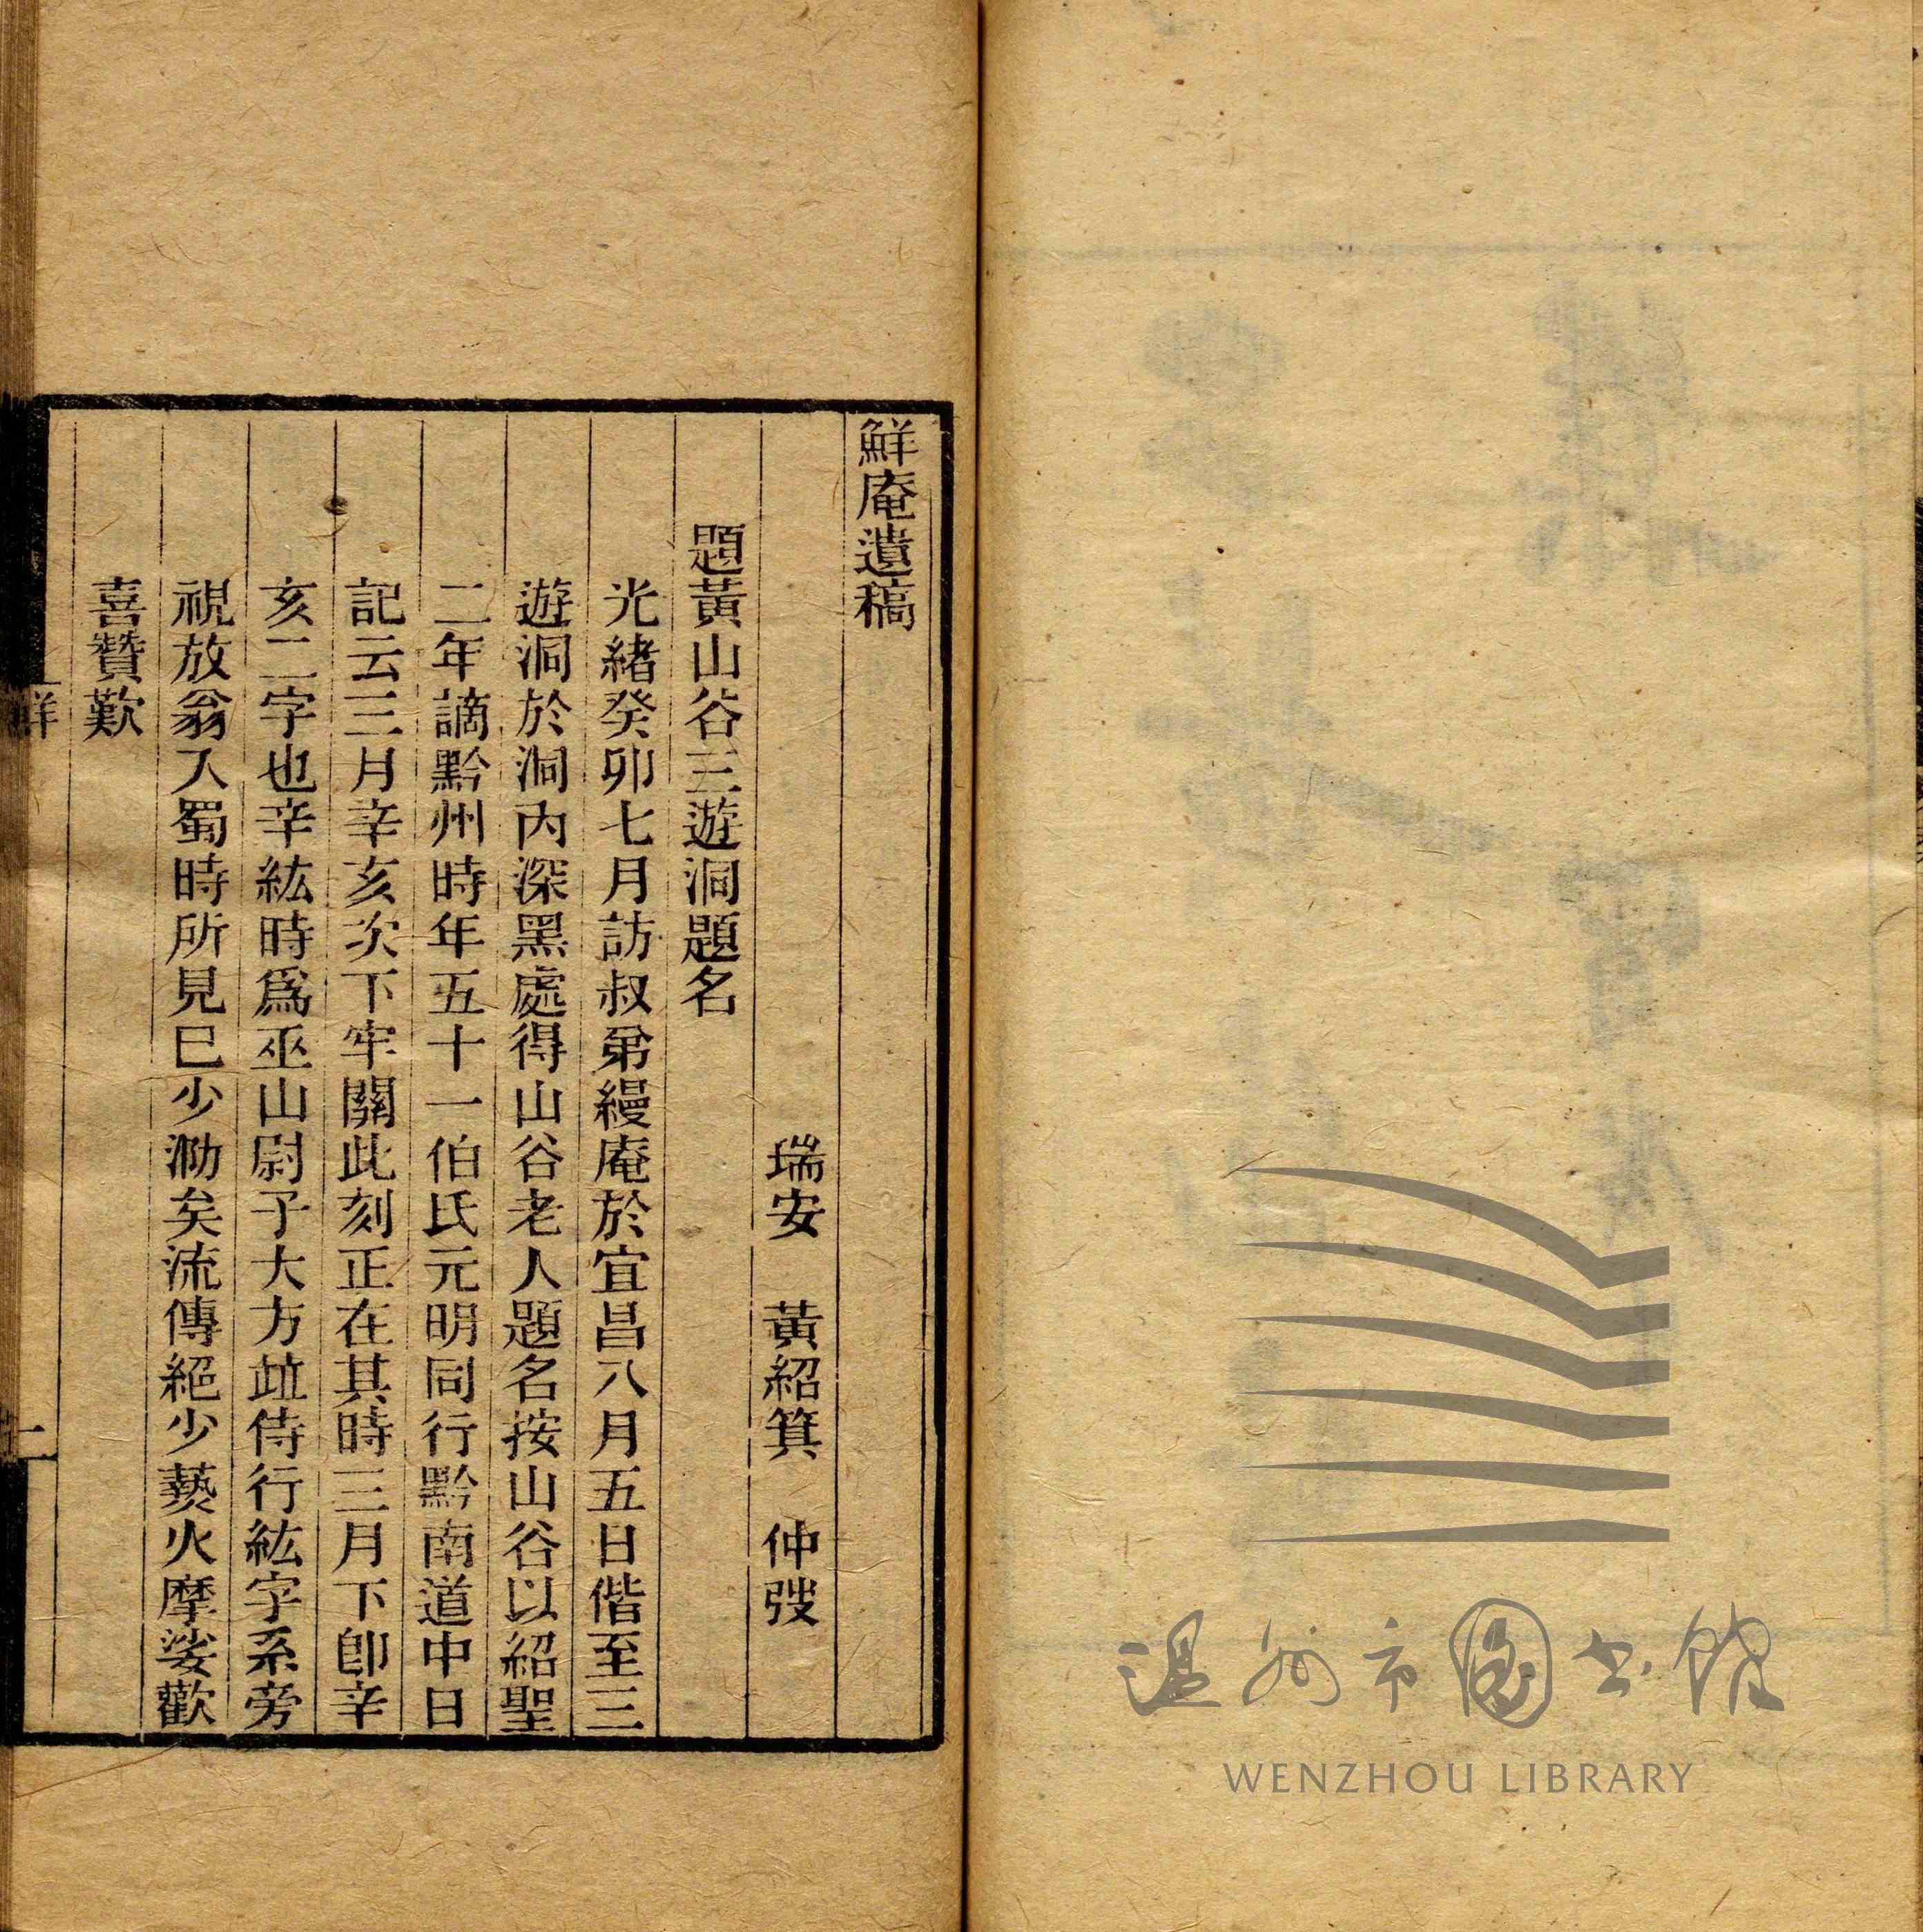 鮮庵遺稿
瑞安　黃紹箕　仲弢
題黃山谷三遊洞題名
光緒癸卯七月訪叔弟縵庵於宜昌八月五日偕至三
遊洞於洞內深黑處得山谷老人題名按山谷以紹聖
二年謫黔州時年五十一伯氏元明同行黔南道中日
記云三月辛亥次下牢關此刻正在其時三月下卽辛
亥二字也辛紘時爲巫山尉子大方竝侍行紘字系旁
視放翁入蜀時所見已少泐矣流傳絕少爇火摩娑歡
喜贊歎
鮮
一
温州市图书馆
WENZHOU LIBRARY